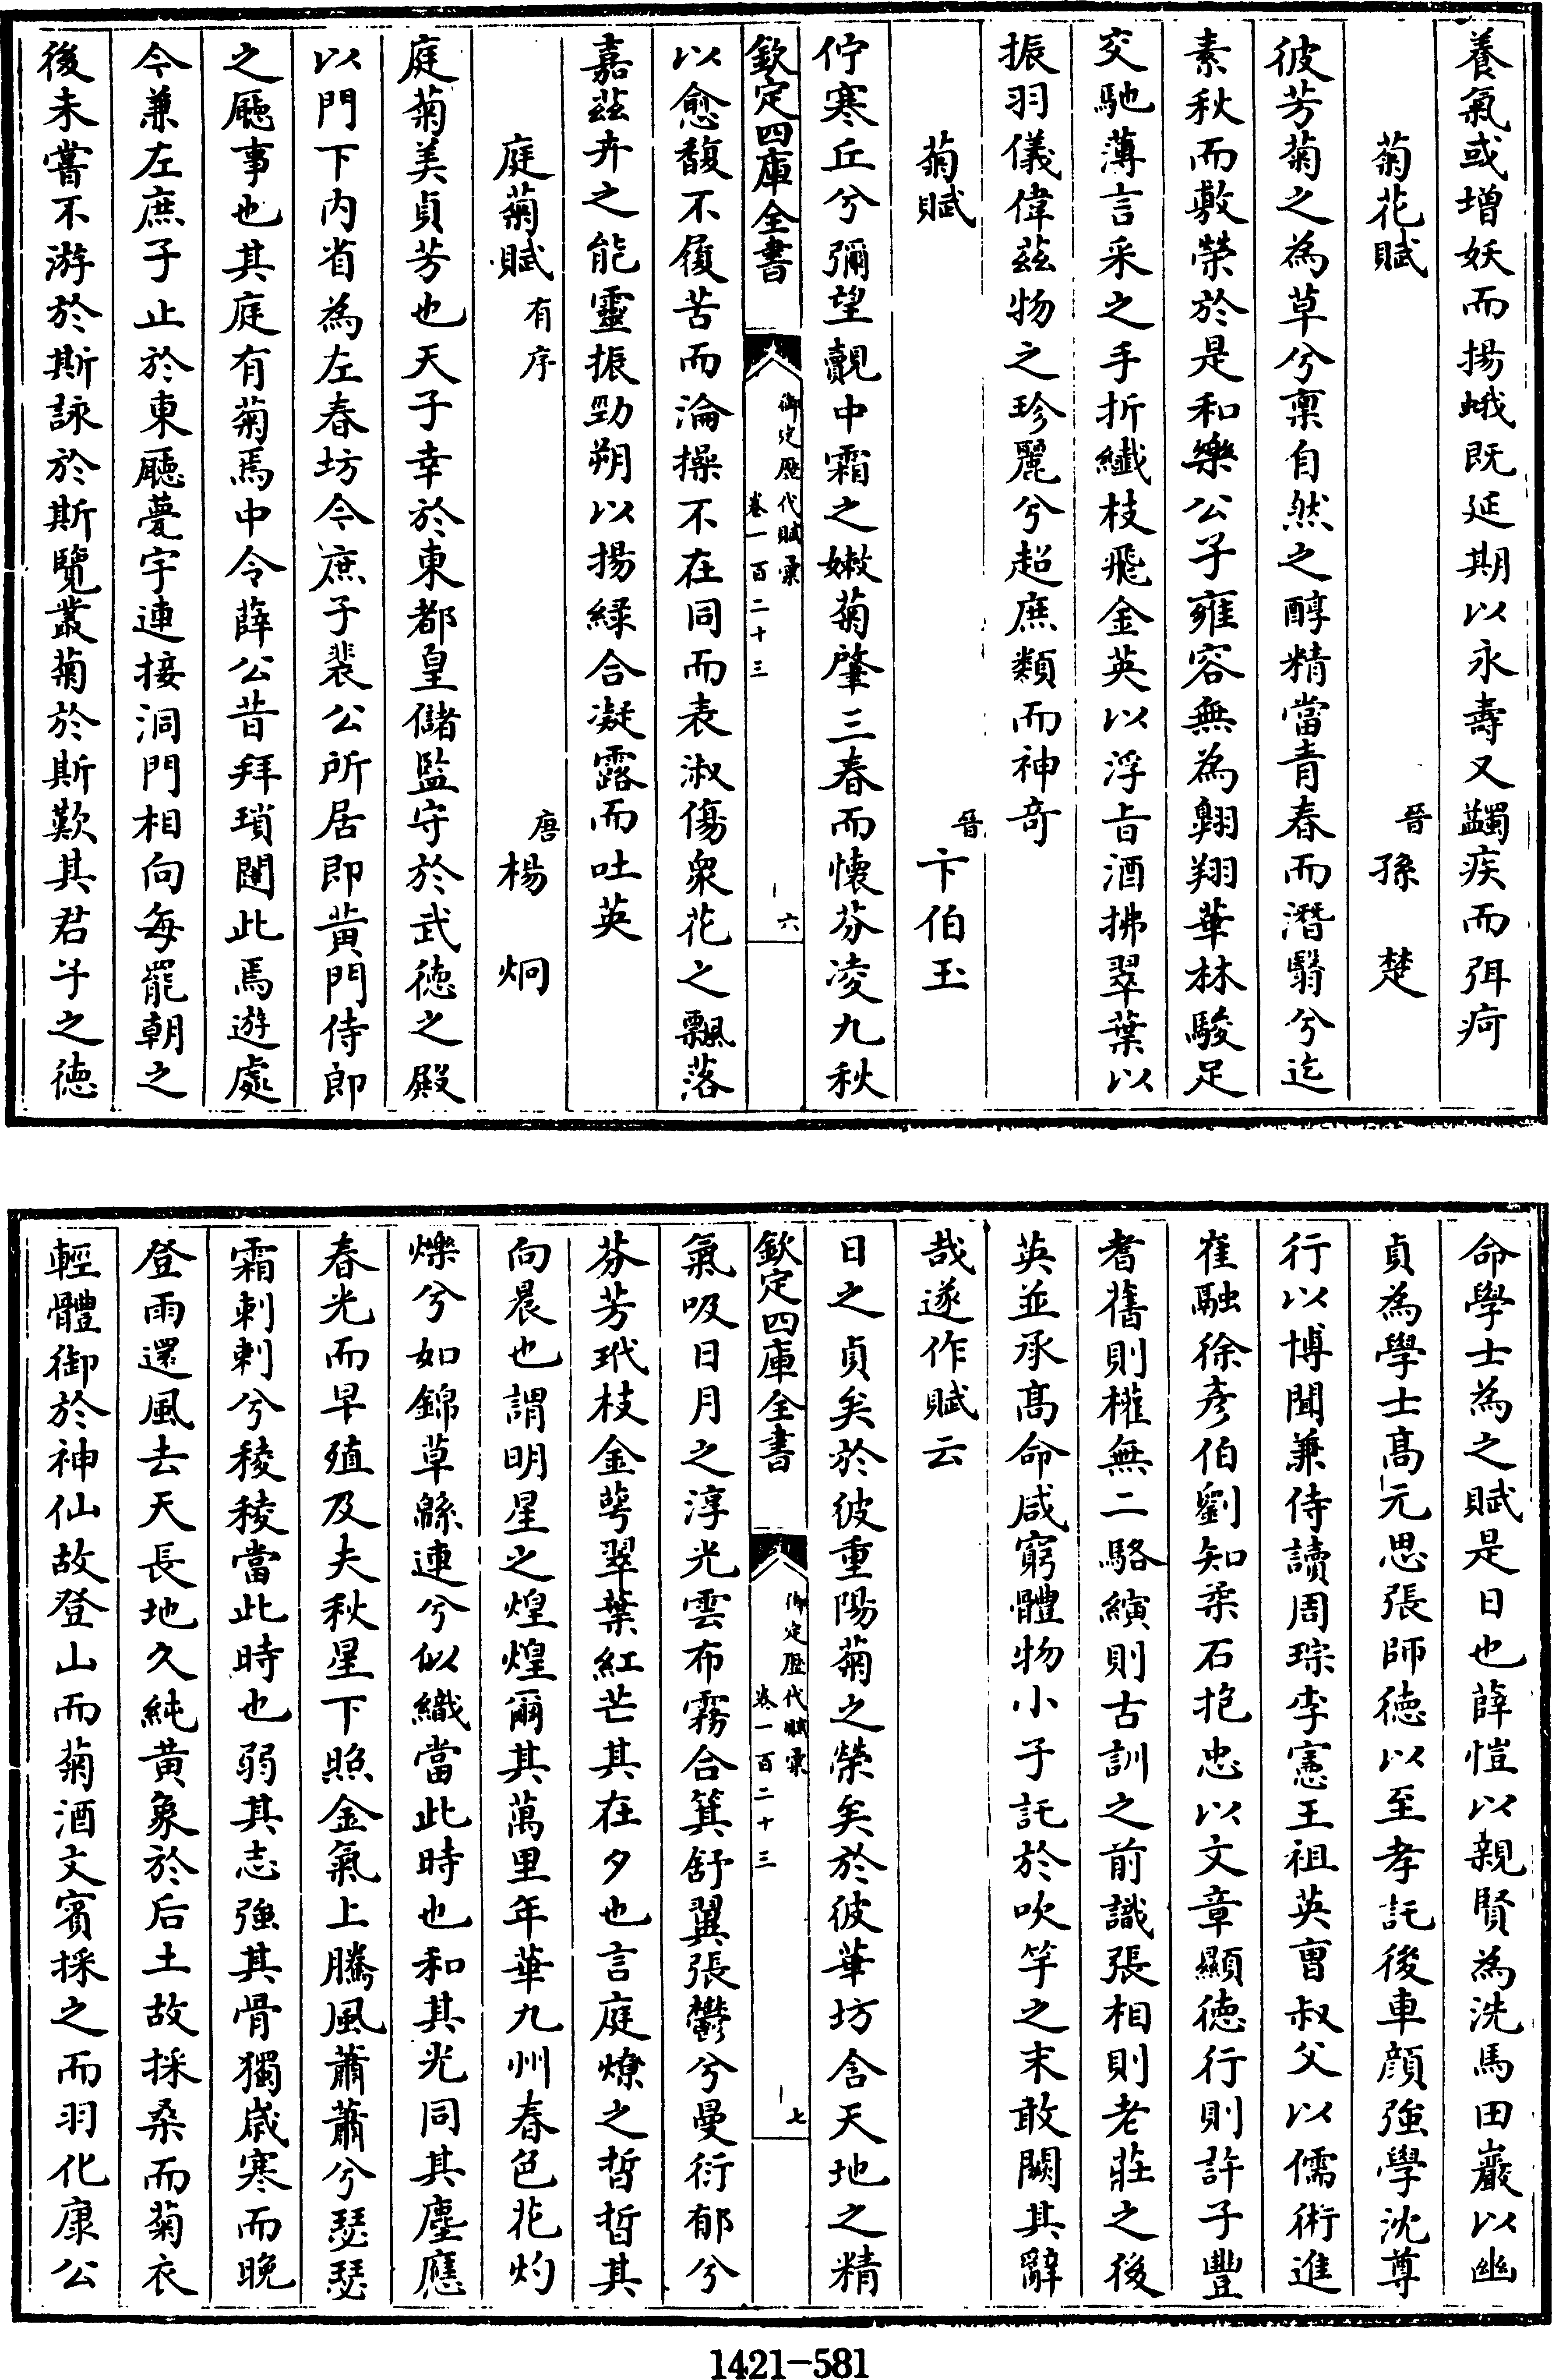 養氣或增妖而揚蛾既延期以永壽又蠲疾而弭痾
菊花賦 晉孫楚
彼芳菊之為草兮稟自然之醇精當青春而潛翳兮迄
素秋而敷榮於是和樂公子雍容無為翱翔華林駿足
交馳薄言采之手折纖枝飛金英以浮旨酒拂翠葉以
振羽儀偉茲物之珍麗兮超庶類而神奇
菊賦 晉卞伯玉
佇寒丘兮彌望覿中霜之嫩菊肇三春而懷芬凌九秋
欽定四庫全書 御定歷代賦彙 卷一百二十三 六
以愈馥不履苦而淪操不在同而表淑傷衆花之飄落
嘉茲卉之能靈振勁朔以揚緑合凝露而吐英
庭菊賦 有序 唐楊炯
庭菊美貞芳也天子幸於東都皇儲監守於武德之殿
以門下内省為左春坊令庶子裴公所居即黄門侍郎
之廳事也其庭有菊焉中令薛公昔拜瑣闥此焉遊處
今兼左庶子止於東廳甍宇連接洞門相向每罷朝之
後未嘗不游於斯詠於斯覽叢菊於斯歎其君子之徳
命學士為之賦是日也薛愷以親賢為洗馬田巖以幽
貞為學士髙元思張師徳以至孝託後車顔強學沈尊
行以博聞兼侍讀周琮李憲王祖英曺叔父以儒術進
崔融徐彦伯劉知柔石抱忠以文章顯徳行則許子豐
耆舊則權無二駱縯則古訓之前識張相則老莊之後
英並承髙命咸窮體物小子託於吹竽之末敢闕其辭
哉遂作賦云
日之貞矣於彼重陽菊之榮矣於彼華坊含天地之精
欽定四庫全書 御定歷代賦彙 卷一百二十三 七
氣吸日月之淳光雲布霧合箕舒翼張鬱兮曼衍郁兮
芬芳玳枝金萼翠葉紅芒其在夕也言庭燎之晢晢其
向晨也謂明星之煌煌爾其萬里年華九州春色花灼
爍兮如錦草緜連兮似織當此時也和其光同其塵應
春光而早殖及夫秋星下照金氣上騰風蕭蕭兮瑟瑟
霜刺刺兮稜稜當此時也弱其志強其骨獨歳寒而晚
登雨還風去天長地久純黄象於后土故採桑而菊衣
輕體御於神仙故登山而菊酒文賓採之而羽化康公
1421-581